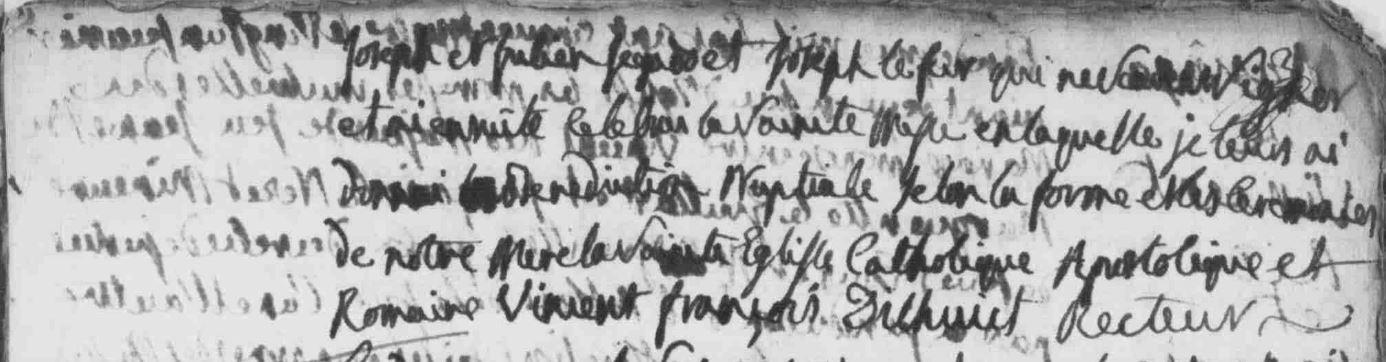 Joseph et Julien Jegado et Joseph le fur qui ne savent signer
et ai ensuite celebré la sainte Messe en laquelle je leur ai
donné la benediction Nuptiale selon la forme et les ceremonies
de notre Mere la sainte Eglisse Catholique Apostolique et
Romaine Vincent françois Recteur